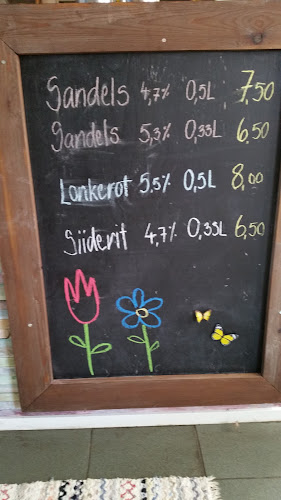 Sandels 4,7% 0,5L 7,50
Sandels 5,3% 0,33L 6,50
Lonkerot 5,5% 0,5L 8,00
Siiderit 4,7% 0,33L 6,50